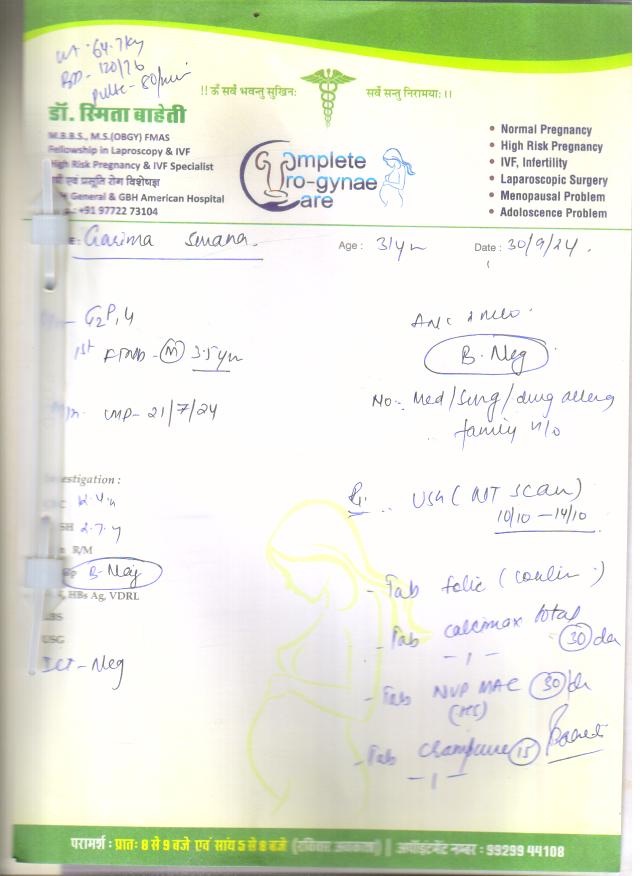 wt - 64.7kg
BP - 120/76
Pulse - 80/min
!! ॐ सर्वे भवन्तु सुखिनः सर्वे सन्तु निरामयाः ।।
डॉ. स्मिता बाहेती
M.B.B.S., M.S.(OBGY) FMAS
Fellowship in Laproscopy & IVF
High Risk Pregnancy & IVF Specialist
एवं प्रसूति रोग विशेषज्ञ
General & GBH American Hospital
+91 97722 73104
Complete
Uro-gynae
Care
• Normal Pregnancy
• High Risk Pregnancy
• IVF, Infertility
• Laparoscopic Surgery
• Menopausal Problem
• Adoloscence Problem
E: Garima
Age : 31yr
Date : 30/9/24.
G2P1L1
1st FTND - M 3.5yr
LMP - 21/7/24
ANC
B. Neg
No:- Med/Surg/drug allergy
family h/o
estigation :
C 12.4
SH 2.7
R/M
B-Neg
HBs Ag, VDRL
BS
USG
ICT - Neg
Rx USG (NT Scan)
10/10 - 14/10
- Tab folic (contin.)
- Tab calcimax total
- 1 - 30 da
- Tab NVP MAC 30 d
(HS)
- Tab 15
- 1 -
परामर्श : प्रातः 8 से 9 बजे एवं सांय 5 से 8 बजे (रविवार अवकाश) || अपॉइंटमेंट नम्बर : 99299 44108